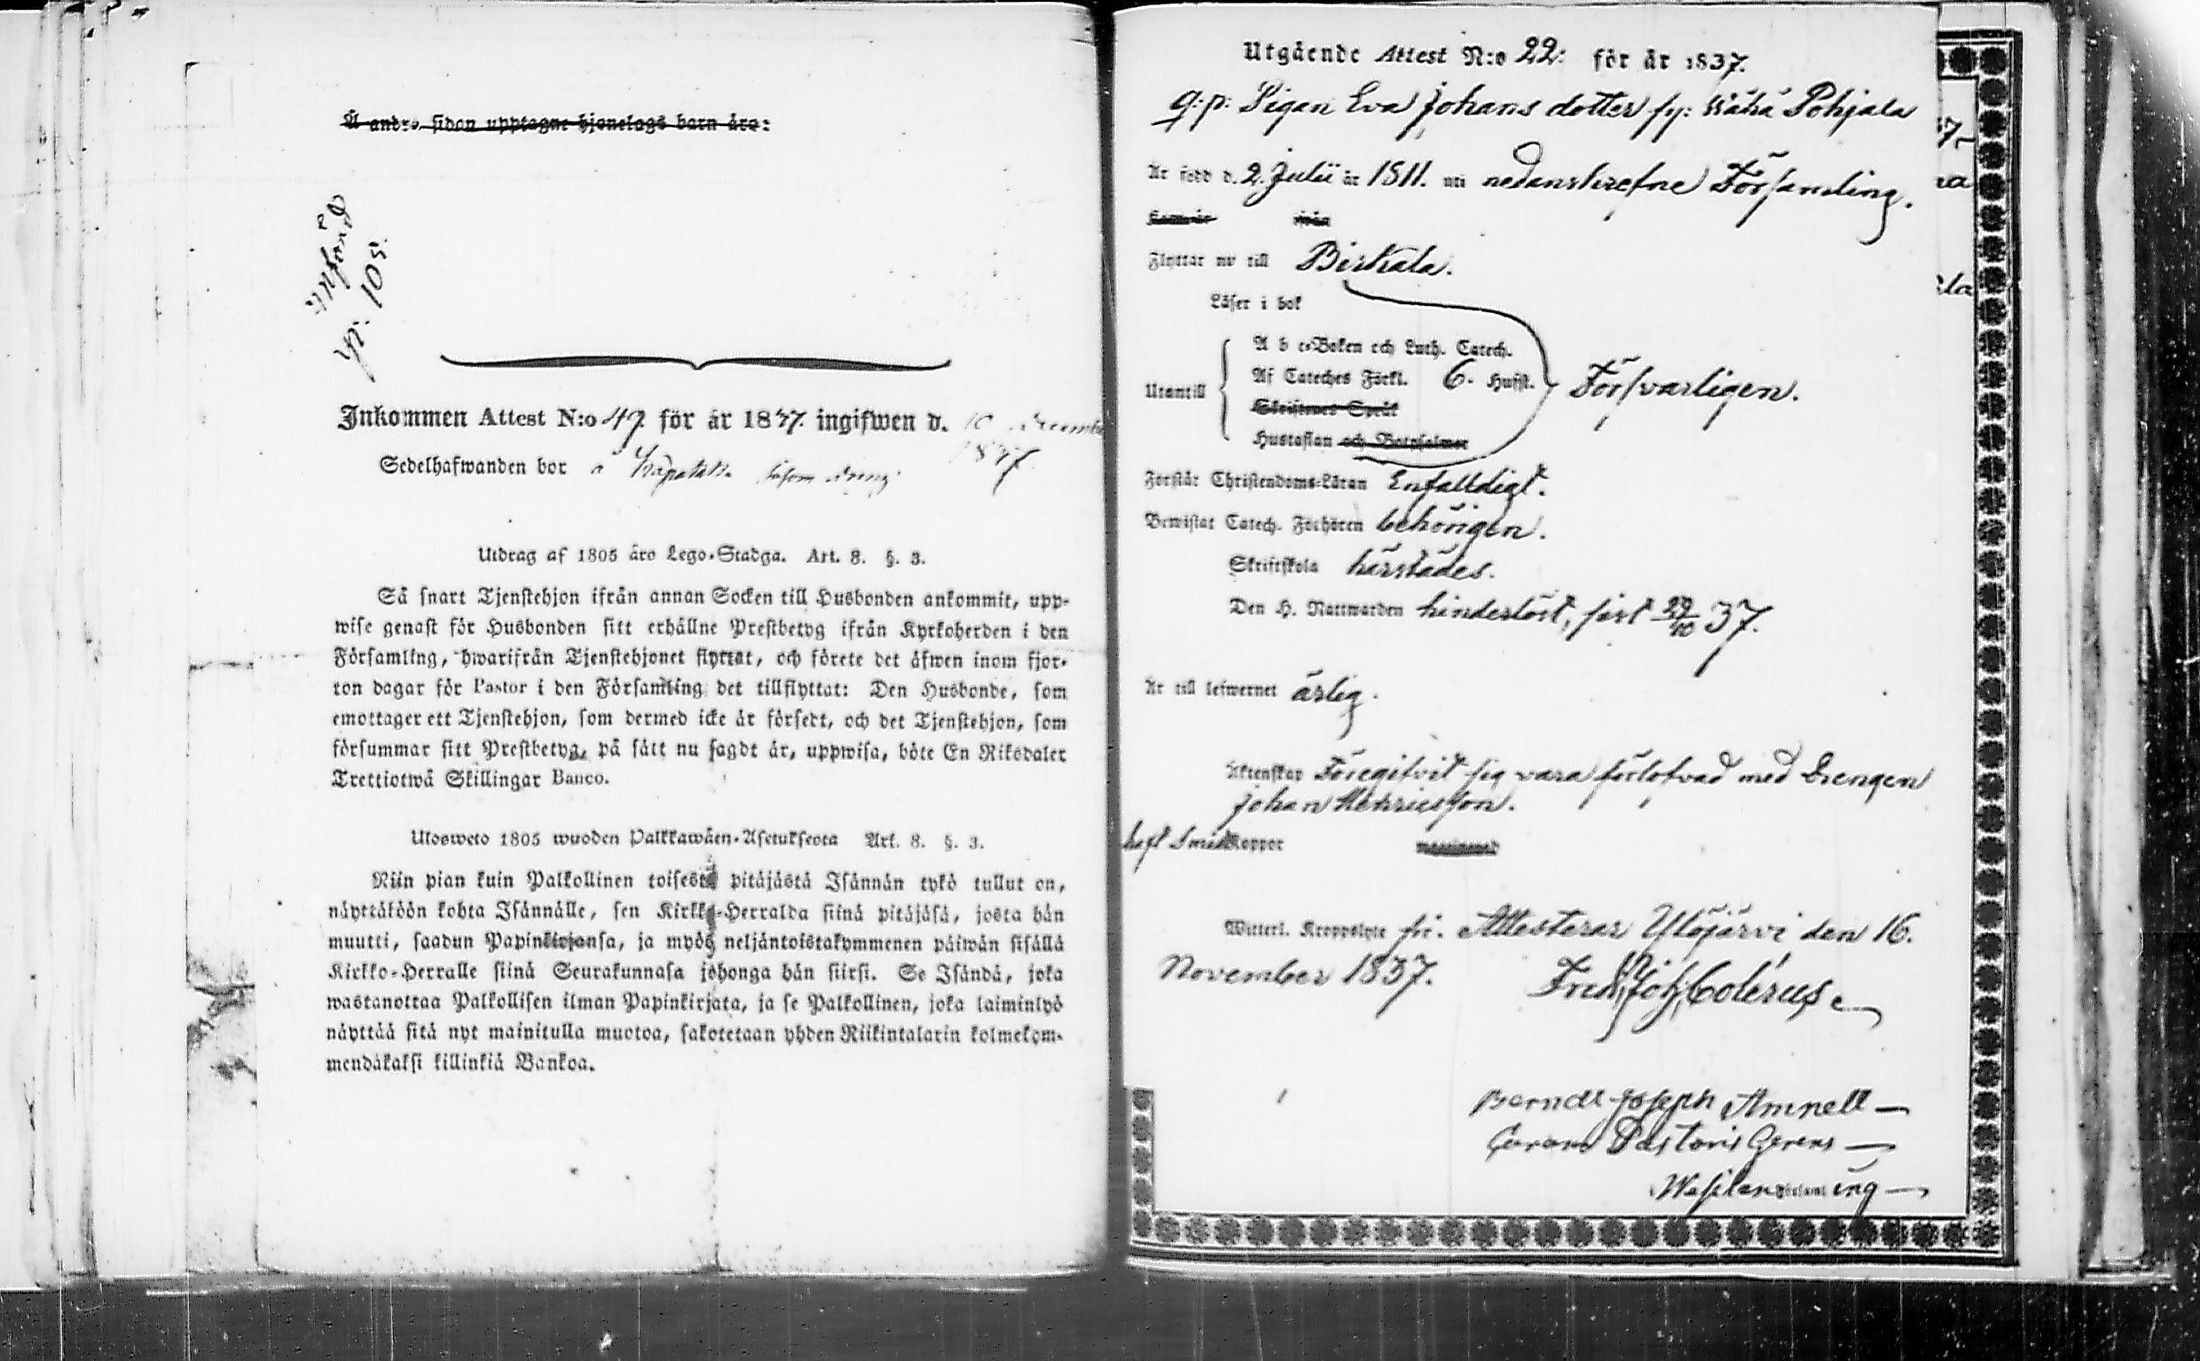 Å andra sidan upptagne hjonelags barn äro:
införd
p: 105.
Inkommen Attest N:o 49 för år 1837. ingifwen d. 10 Decembe
1837.
Sedelhafwanden bor å såsom dräng
Utdrag af 1805 års Lego-Stadga. Art. 8. §. 3.
Så snart Tjenstehjon ifrån annan Socken till Husbonden ankommit, upp-
wise genast för Husbonden sitt erhållne Prestbetyg ifrån Kyrkoherden i den
Församling, hwarifrån Tjenstehjonet flyttat, och förete det äfwen inom fjor-
ton dagar för Pastor i den Församling det tillflyttat: Den Husbonde, som
emottager ett Tjenstehjon, som dermed icke är försedt, och det Tjenstehjon, som
försummar sitt Prestbetyg, på sätt nu sagdt är, uppwisa, böte En Riksdaler
Trettiotwå Skillingar Banco.
Ulosweto 1805 wuoden Palkkawäen-Asetuksesta Art. 8. §. 3.
Niin pian kuin Palkollinen toisesta pitäjästä Isännän tykö tullut on,
näyttäköön kohta Isännälle, sen Kirkko-Herralda siinä pitäjäsä, josta hän
muutti, saadun Papinkirjansa, ja myös neljäntoistakymmenen päiwän sisällä
Kirkko-Herralle siinä Seurakunnasa johonga hän siirsi. Se Isändä, joka
wastanottaa Palkollisen ilman Papinkirjata, ja se Palkollinen, joka laiminlyö
näyttää sitä nyt mainitulla muotoa, sakotetaan yhden Riikintalarin kolmekym-
mendäkaksi killinkiä Bankoa.
Utgående Attest N:o 22. för år 1837.
q.p. Pigan Eva Johans dotter fr: Wähä Pohjala
Är född d. 2. Julii år 1811. uti nedanskrefne Församling.
Kom år ifrån
Flyttar nu till Birkala.
Läser i bok
A b c-Boken och Luth. Catech.
Utantill Af Cateches Förkl. 6. Hufst. Försvarligen.
Skriftenes Språk
Hustaflan och Botpsalmer
Förstår Christendoms-Läran Enfalldigt.
Bewistat Catech. Förhören behörigen.
Skriftskola härstädes.
Den H. Nattwarden hinderlöst, sist 29/10 37.
Är till lefwernet ärlig.
Äktenskap Föregifvit sig vara förlofvad med Drengen
Johan Henricsson.
haft Små Koppor
Witterl. Kroppslyte fri. Attesterar Ylöjärvi den 16.
November 1837. Fredr. Joh. Colérus
Berndt Joseph Amnell
Curam Pastoris Gerens